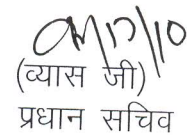 (व्यास जी)
प्रधान सचिव